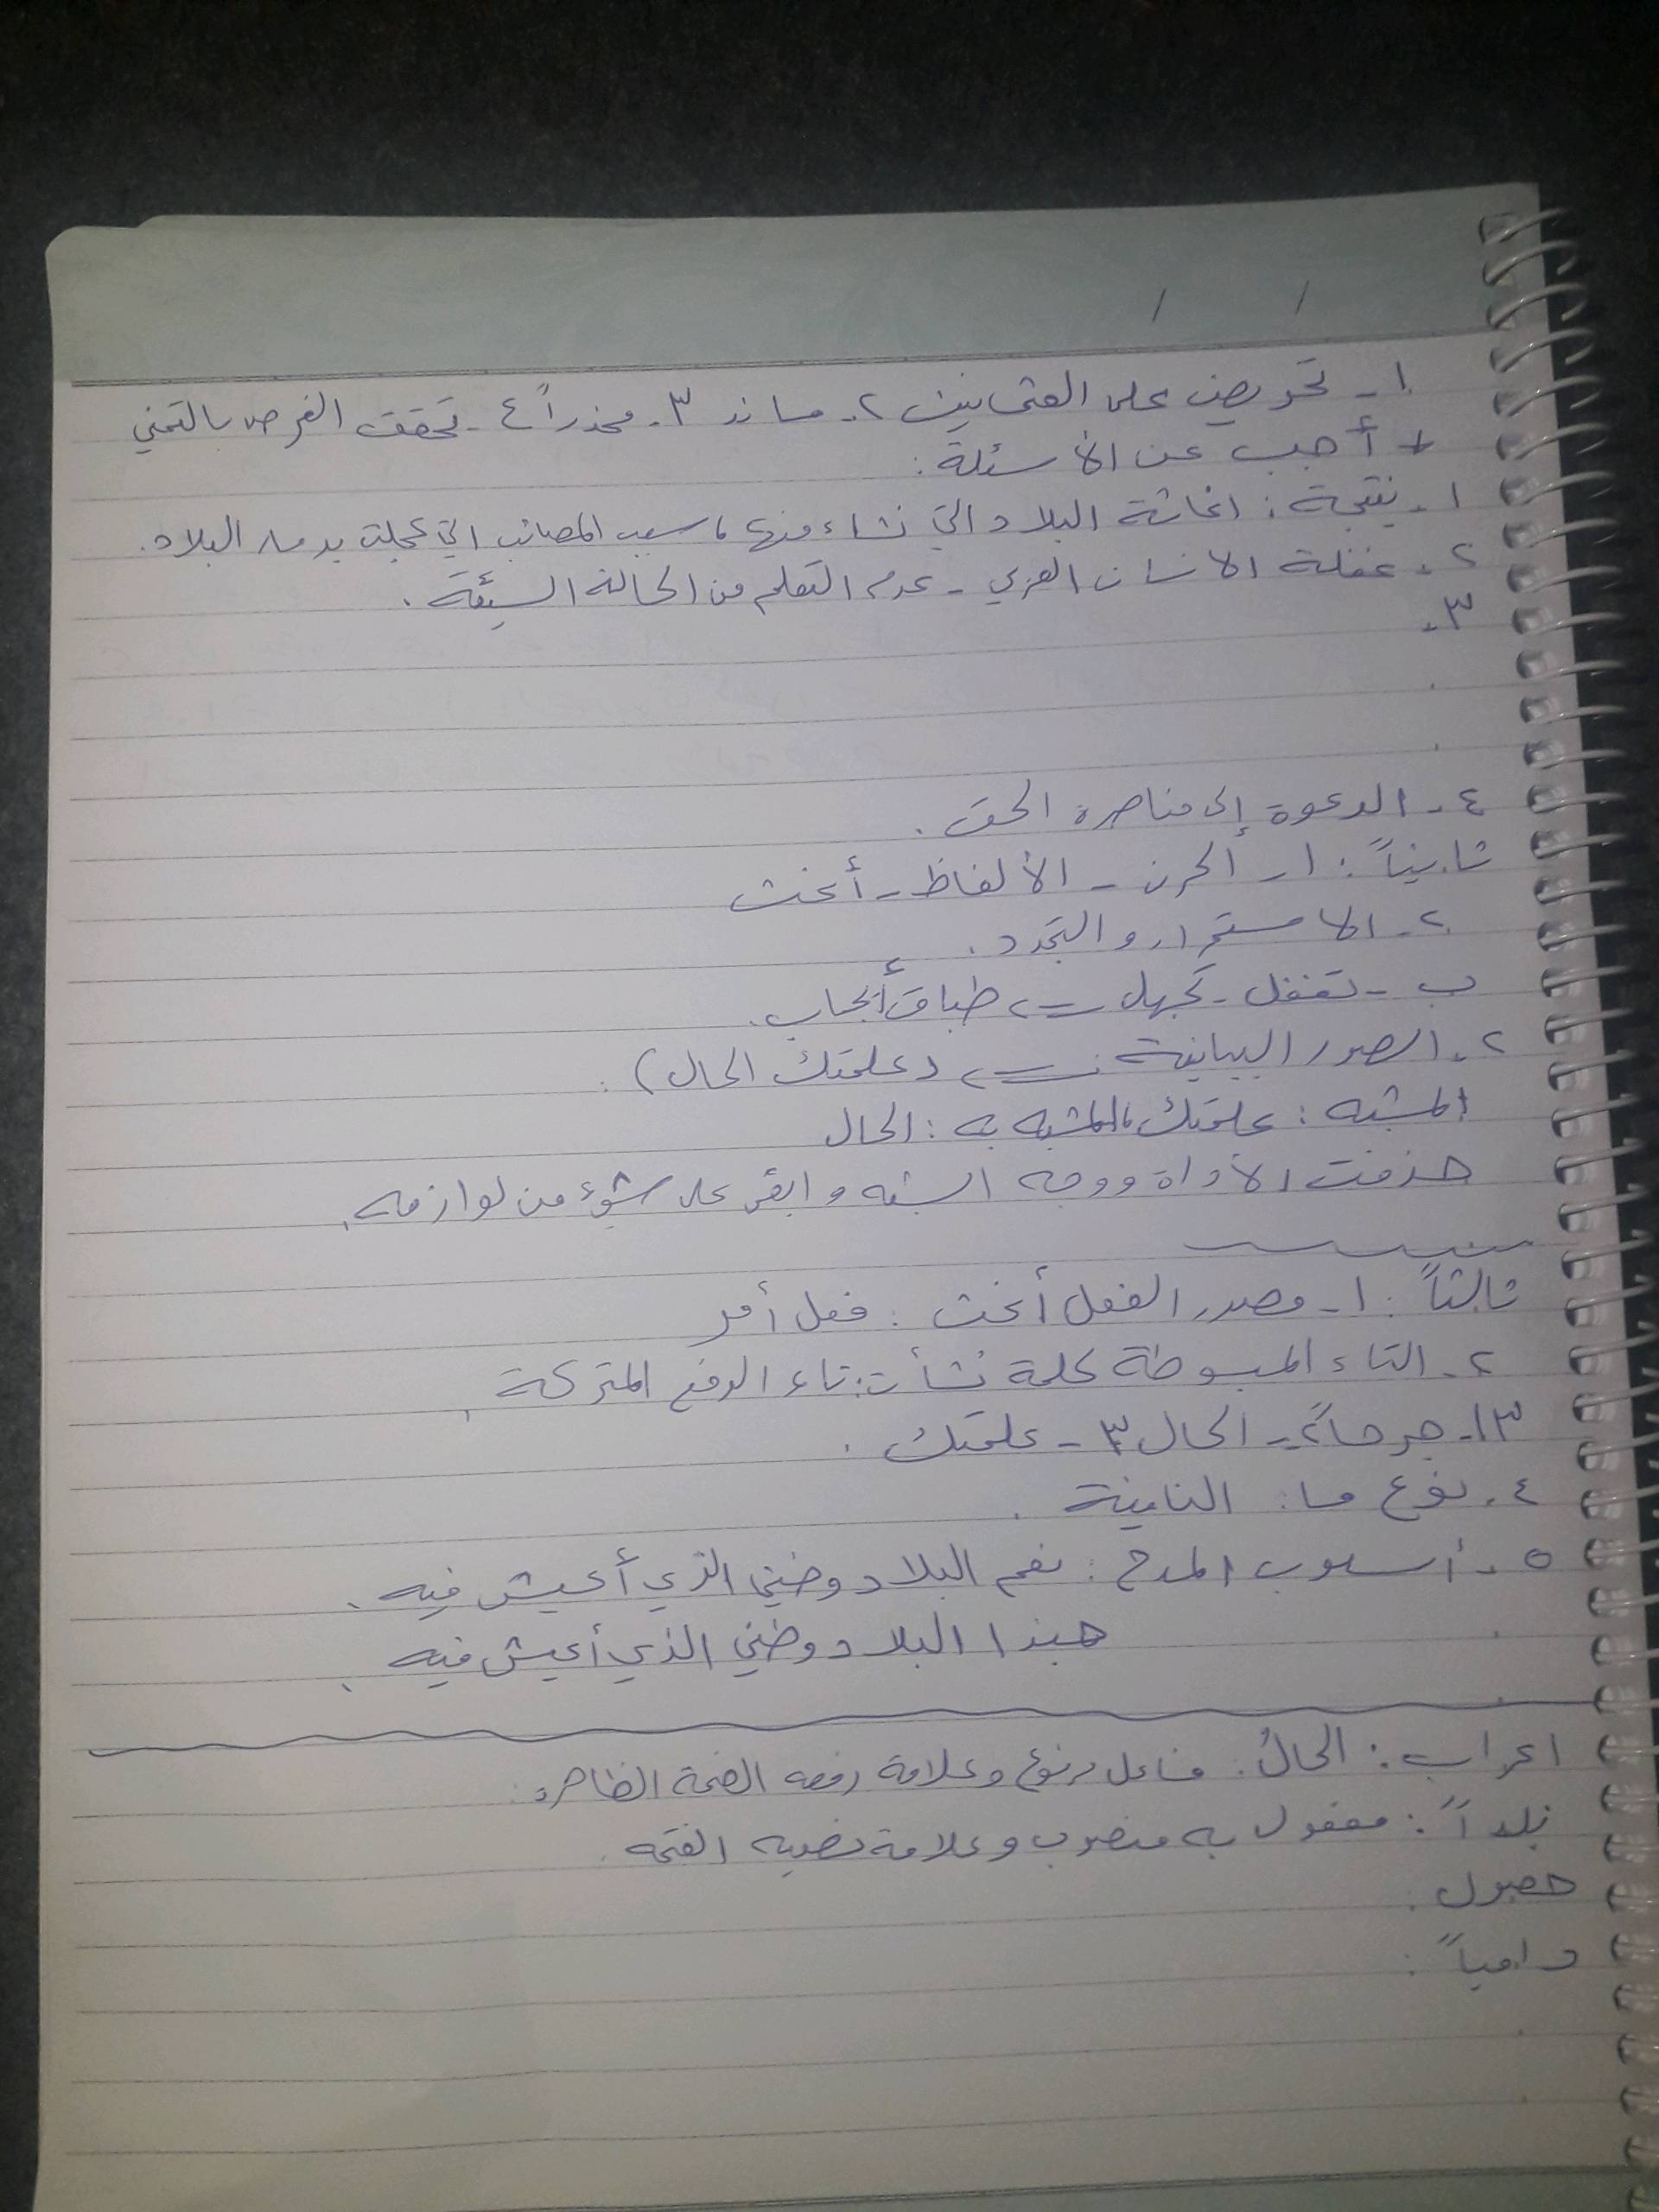 / /
١- تحريض على العثمانيين ٢- ساند ٣- محذراً ٤- تحقق الغرض بالتمني
+ أجب عن الأسئلة :
١- نتيجة : اغاثة البلاد التي نشاء منها ، سبب المصائب التي عجلت بدمار البلاد .
٢- غفلة الانسان العربي - عدم التعلم من الحالة السيئة .
٣-
٤- الدعوة إلى مناصرة الحق .
ثانياً : ١- الحزن - الألفاظ - أغث
٢- الاستمرار و التجدد .
ب - تغفل - تجهل ⇐ طباق أيجاب .
٢- الصور البيانية : ⇐ (علمتك الحال) :
المشبه : علمتك ، المشبه به : الحال
حذفت الأداة ووجه الشبه و ابقى على شيء من لوازمه .
ثالثاً : ١- مصدر الفعل أغث : فعل أمر
٢- التاء المبسوطة كلمة نشأت : تاء الرفع المتحركة .
٣- ١- جرحاً ٢- الحال ٣- علمتك .
٤- نوع ما : النافية .
٥- أسلوب المدح : نعم البلاد وطني الذي أعيش فيه .
حبذا البلاد وطني الذي أعيش فيه .
اعراب : الحالُ : فاعل مرفوع وعلامة رفعه الضمة الظاهرة .
بلداً : مفعول به منصوب وعلامة نصبه الفتحه .
حصول :
دامياً :